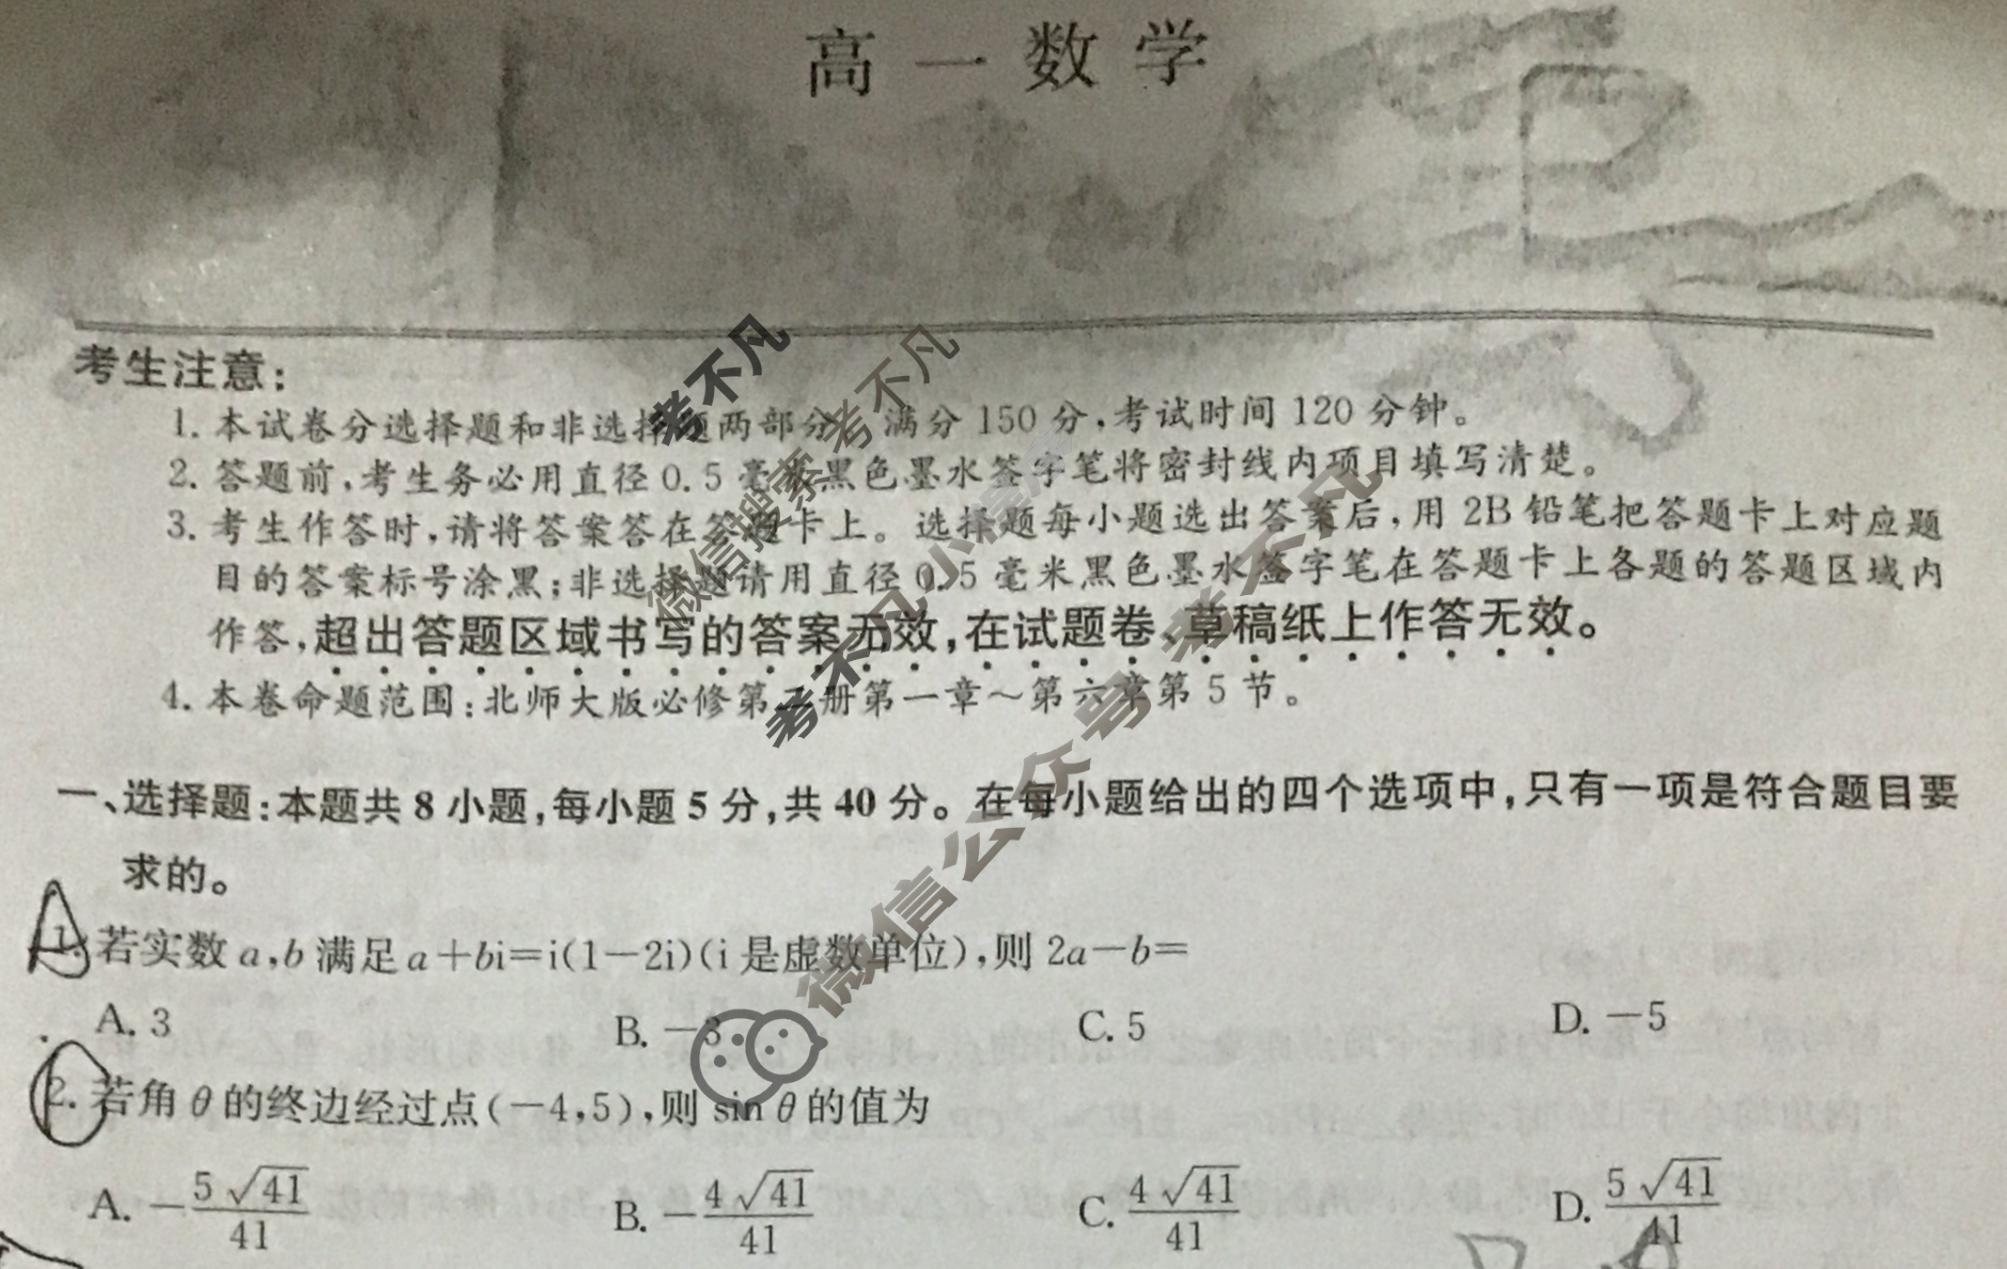 高一数学
考生注意:
1. 本试卷分选择题和非选择题两部分。满分 150 分,考试时间 120 分钟。
2. 答题前,考生务必用直径 0.5 毫米黑色墨水签字笔将密封线内项目填写清楚。
3. 考生作答时,请将答案答在答题卡上。选择题每小题选出答案后,用 2B 铅笔把答题卡上对应题
目的答案标号涂黑;非选择题请用直径 0.5 毫米黑色墨水签字笔在答题卡上各题的答题区域内
作答,超出答题区域书写的答案无效,在试题卷、草稿纸上作答无效。
4. 本卷命题范围:北师大版必修第二册第一章~第六章第 5 节。
一、选择题:本题共 8 小题,每小题 5 分,共 40 分。在每小题给出的四个选项中,只有一项是符合题目要
求的。
A
1. 若实数 a,b 满足 a+bi=i(1-2i)(i 是虚数单位),则 2a-b=
A. 3 B. -3 C. 5 D. -5
2. 若角 θ 的终边经过点(-4,5),则 sin θ 的值为
A. -5√41/41 B. -4√41/41 C. 4√41/41 D. 5√41/41
考不凡
微信搜索 考不凡
考不凡小程序
微信公众号 考不凡